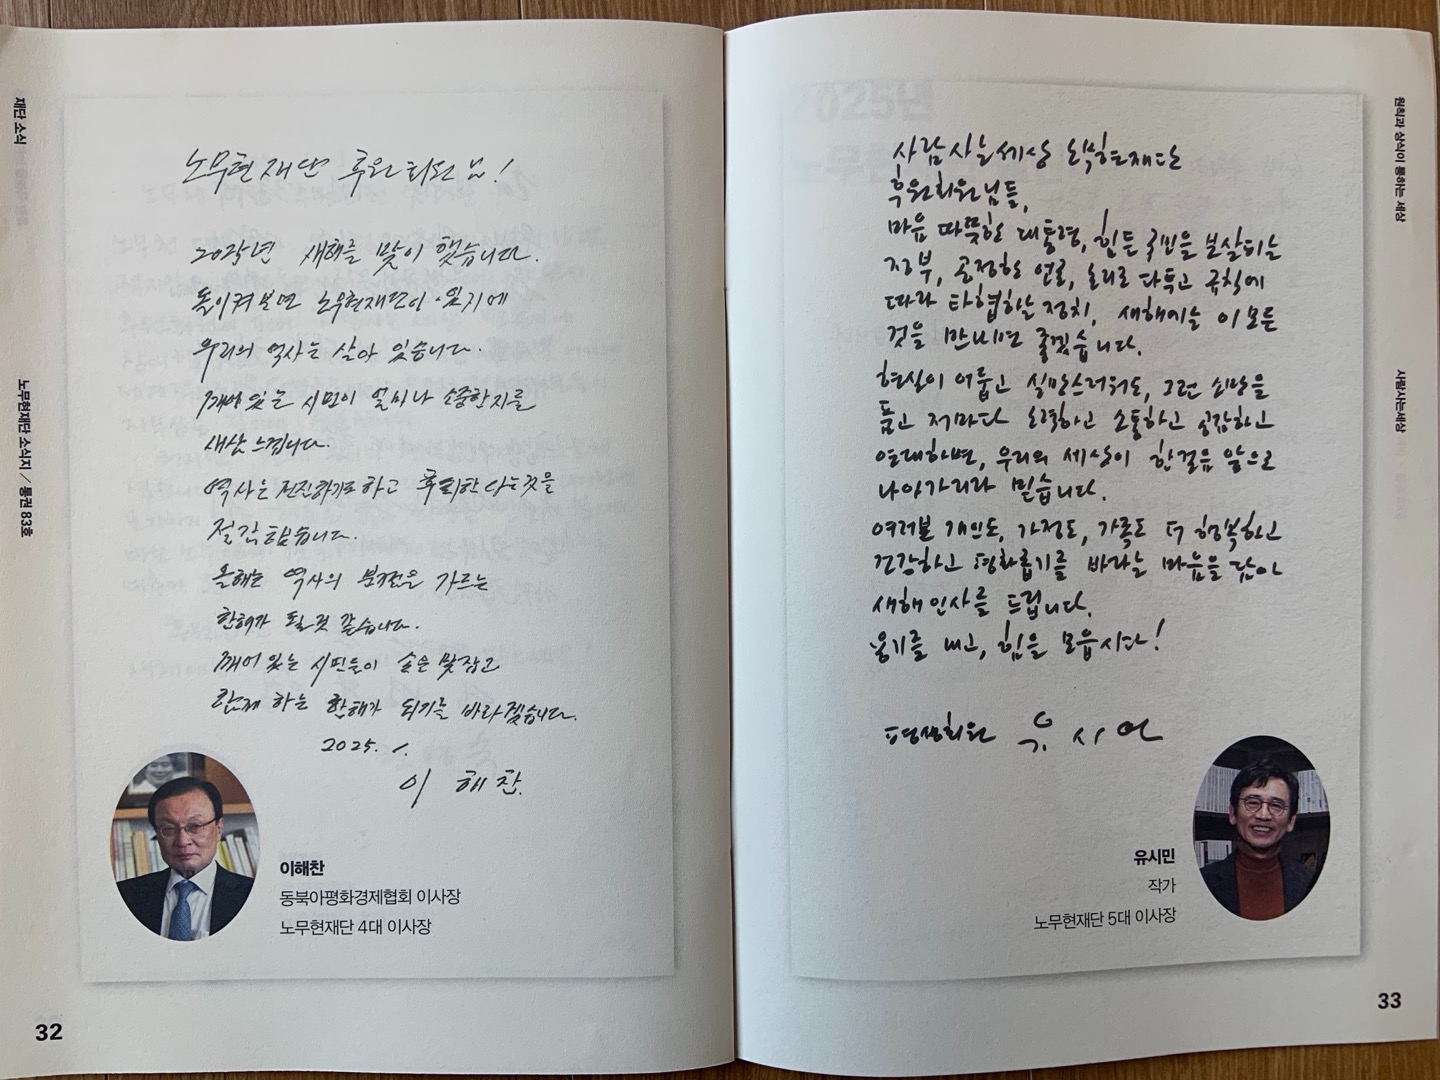 재단 소식
노무현재단 소식지 / 통권 83호
노무현재단 후원회원님!
2025년 새해를 맞이 했습니다.
돌이켜보면 노무현재단이
우리의 역사는 살아 있습니다.
깨어있는 시민이 얼마나 소중한지를
새삼 느낍니다.
역사는 전진하기도 하고 후퇴한다는 것을
절감합니다.
올해는 역사의 분기점을 가르는
한해가 될 것 같습니다.
깨어 있는 시민들이 손을 맞잡고
함께 하는 한해가 되기를 바라겠습니다.
2025. 1.
이 해 찬
이해찬
동북아평화경제협회 이사장
노무현재단 4대 이사장
32
원칙과 상식이 통하는 세상
사람사는세상
사람사는세상 노무현재단
후원회원님들,
마음 따뜻한 대통령, 힘든 국민을 보살피는
정부, 공정한 언론, 토론을 다투고 규칙에
따라 타협하는 정치, 새해에는 이 모든
것을 만나면 좋겠습니다.
현실이 어둡고 실망스러워도, 그런 소망을
품고 저마다 노력하고 소통하고 공감하고
연대하면, 우리의 세상이 한걸음 앞으로
나아가리라 믿습니다.
여러분 개인도, 가정도, 가족도 더 행복하고
건강하고 평화롭기를 바라는 마음을 담아
새해인사를 드립니다.
용기를 내고, 힘을 모읍시다!
평생회원 유시민
유시민
작가
노무현재단 5대 이사장
33